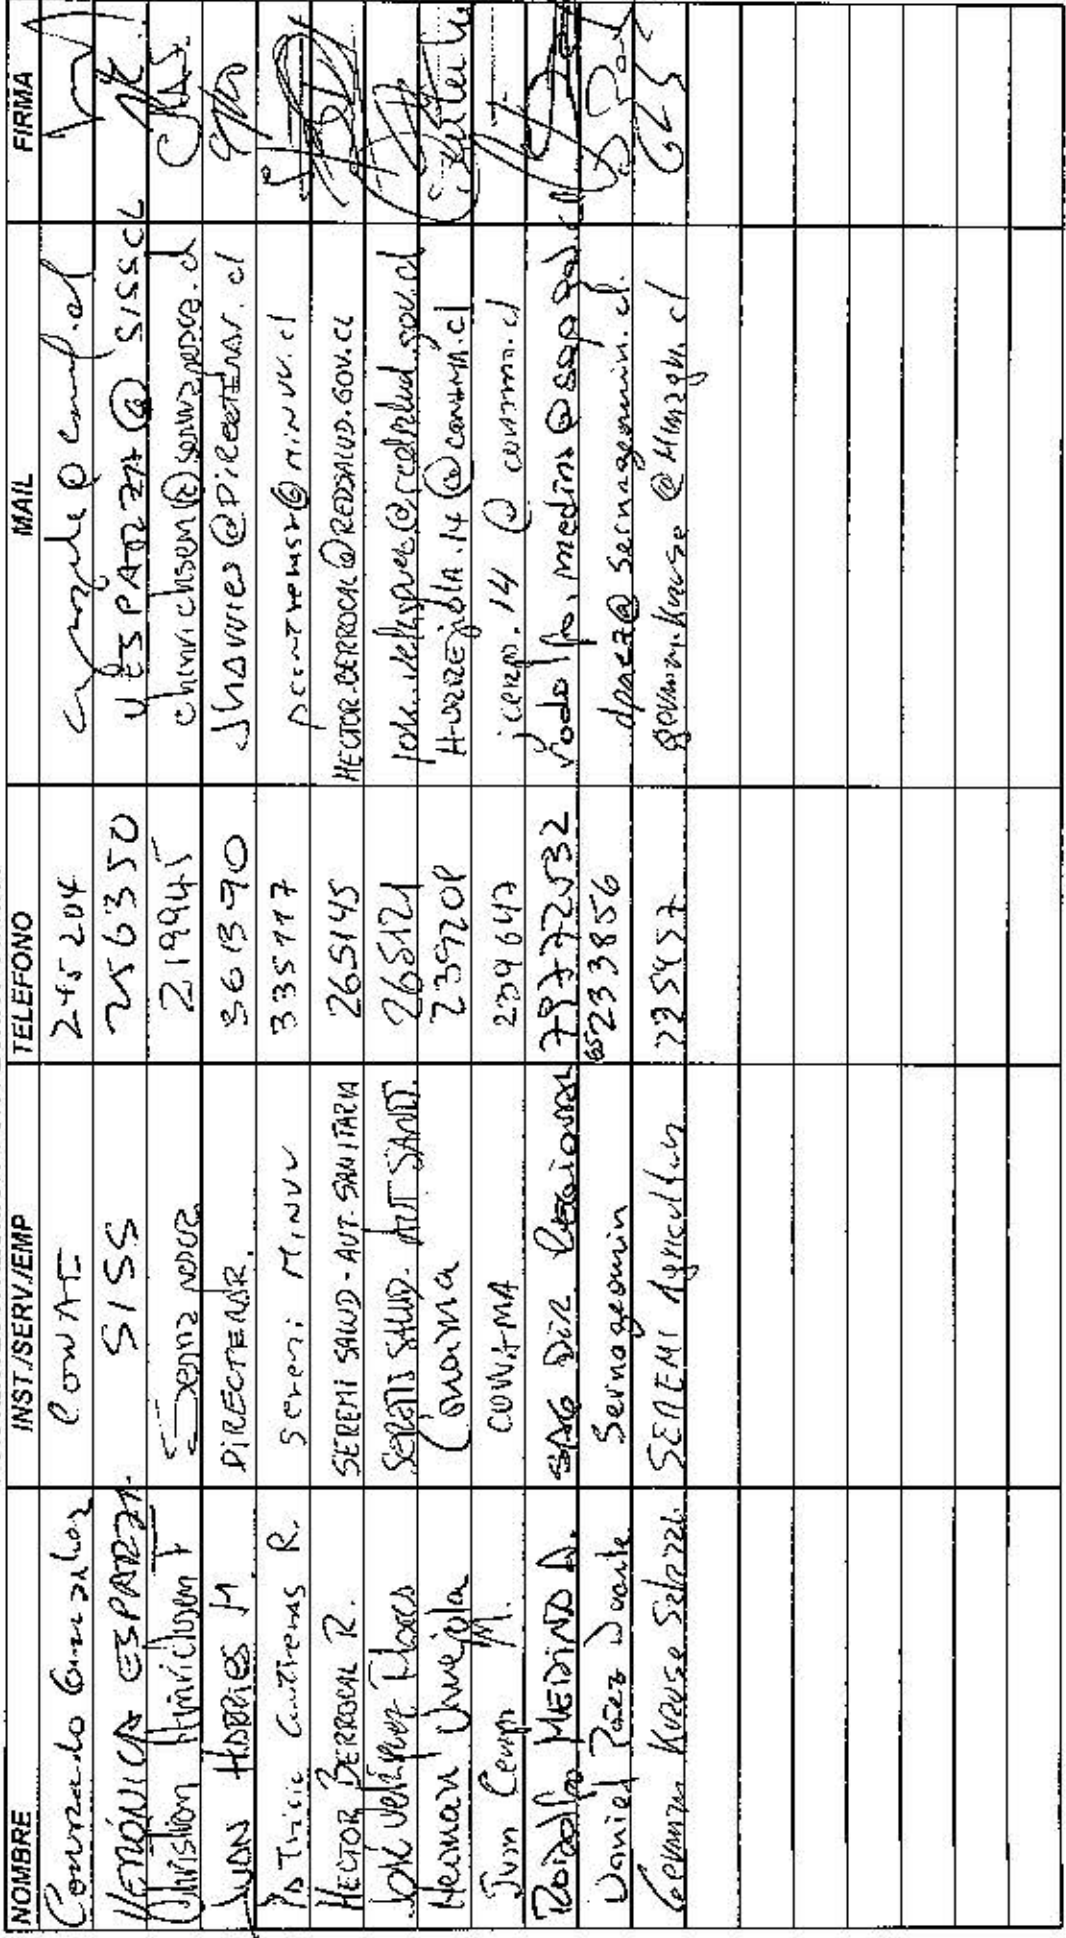 NOMBRE INST./SERV./EMP TELEFONO MAIL FIRMA
Gonzalo González CONAF 245204
VERÓNICA ESPARZA SISS 256350 VESPARZA@SISS.CL
Christian Hinrichsen 219945
JUAN HARRIES M DIRECTEMAR. 361390 Jharries@Directemar.cl
Patricio Contreras R. Seremi MINVU 335117 pcontrerasr@minvu.cl
HECTOR BERROCAL R. SEREMI SALUD-AUT. SANITARIA 265145 HECTOR.BERROCAL@REDSALUD.GOV.CL
José Velásquez Flores SEREMI SALUD. AUT SANIT. 265121
Hernan Urrejola Conama 239208 H-URREJOLA.14@CONAMA.cl
Juan Cerpa M. CONAMA 239647 jcerpa.14@conama.cl
Rodolfo MEDINA A. SAG Dir Regional 79772532
Daniel Páez Sernageomin 65233856 dpaez@sernageomin.cl.
German Kruse SEREMI Agricultura german.kruse@minagri.cl